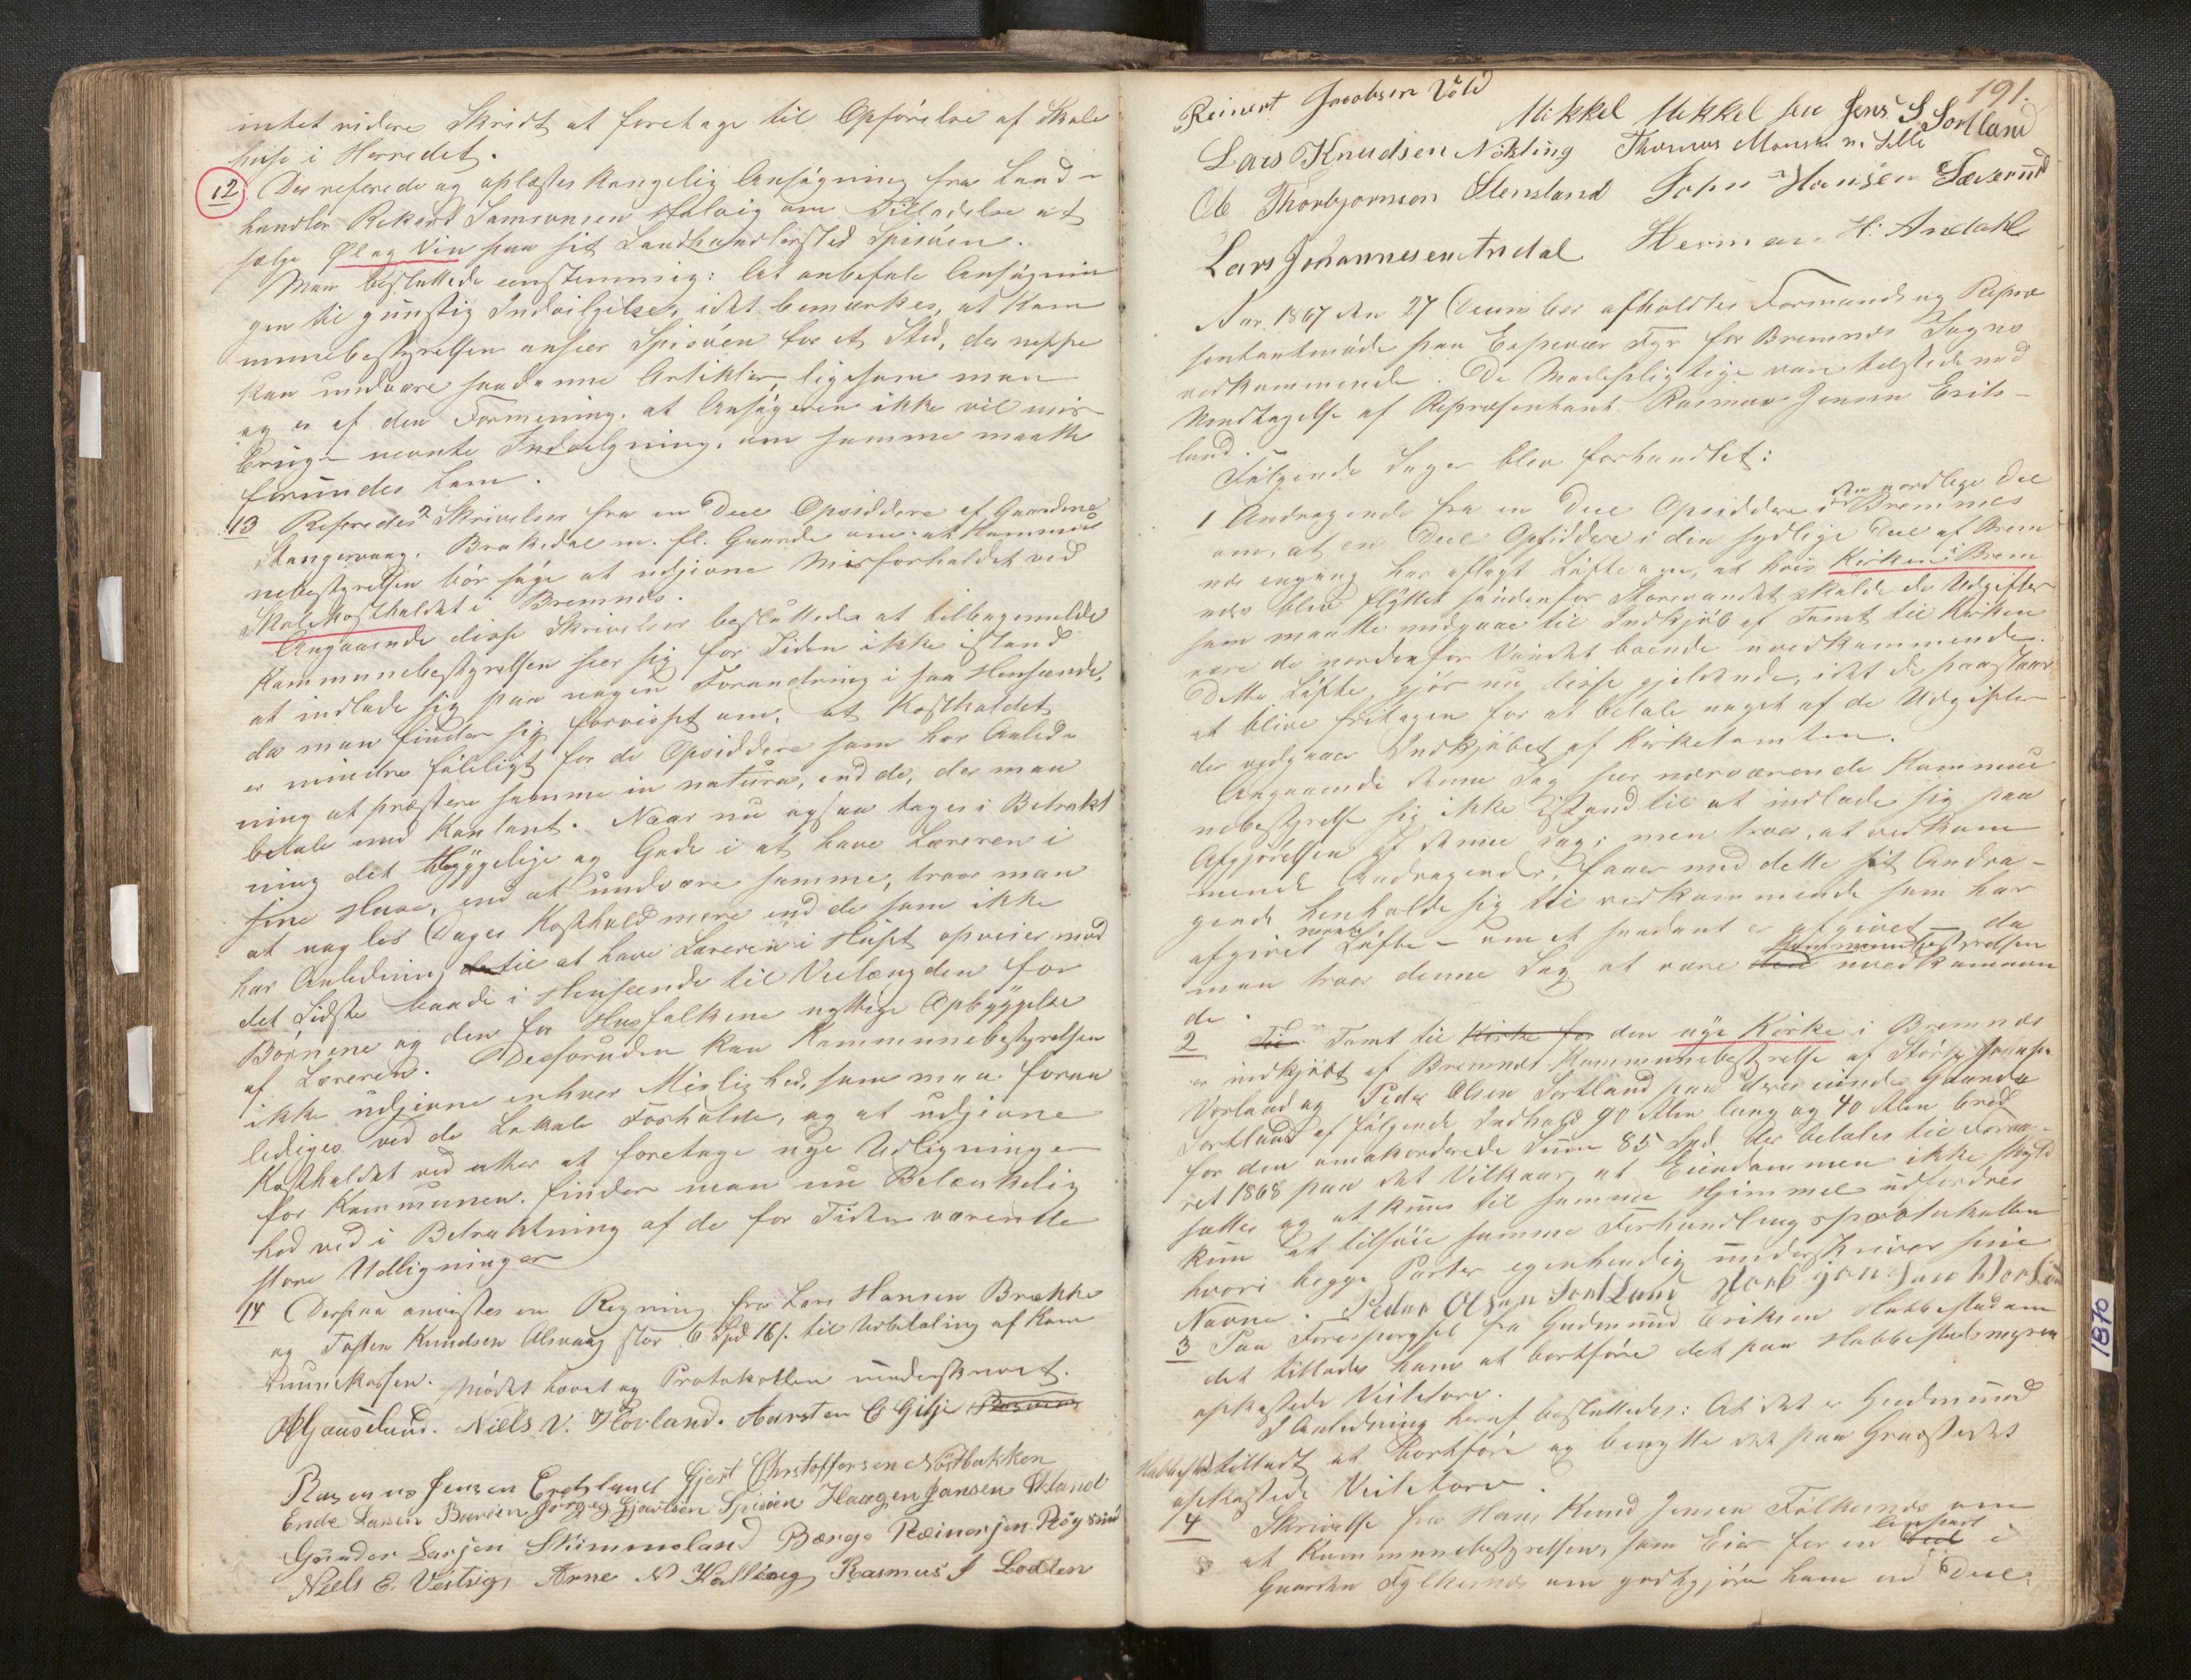 intet videre Skridt at foretage til Opførelse af Skole
huse i Herredet.
12 Der refererede og oplæstes kongelig Ansøgning fra Land-
handler Rikard Samsonsen Halvig om Tilladelse at
sælge Øl og Vin paa sit Landhandlersted Spisöen.
Man besluttede eenstemmig: At anbefale Ansøgnin
gen til gunstig Indvilgelse, idet bemærkes, at Kom
munebestyrelsen anseer Spisöen for et Sted, der neppe
kan undvære saadanne Artikler, ligesom man
og er af den Formening, at Ansøgeren ikke vil mis
bruge nevnte Indvilgning, om samme maatte
forundes ham.
13 Referedes 2 Skrivelser fra en Deel Opsiddere af Gaardene
Stangervaag, Brakedal m. fl. Gaarde om at Kommu
nebestyrelsen bör søge at udjevne Misforholdet ved
Skolekostholdet i Bremnes.
Angaaende disse Skrivelser besluttedes at tilbagemelde
Kommunebestyrelsen seer sig for Tiden ikke istand
at indlade sig paa nogen Forandring i saa Henseende,
da man finder sig forvisset om, at Kostholdet
er mindre føleligt for de Opsiddere som har Anled-
ning at præstere samme in natura, end de, der maa
betale med Kontant. Naar nu ogsaa tages i Betrakt
ning det Hyggelige og Gode i at have Læreren i
sine Huse, end at undvære samme, troer man
at nogles Dages Kosthold mere end de som ikke
har Anledning til at have Læreren i Huset opveier mod
det Sidste baade i Henseende til Veiledngden for
Børnene og den for Husfolkene nyttige Opbyggelse
af Læreren. Desforuden kan Kommunebestyrelsen
ikke udjevne enhver Mislighed, som maa foran
lediges ved de Lokale Forholde, og at udjevne
Kostholdet ved atter at foretage nye Udligninger
for Kommunen, finder man nu Betænkelig
hed ved i Betraktning af de for Tiden værende
store Udligninger
14 Derpaa anvistes en Regning fra Lars Hansen Brække
og Tosten Knudsen Alsvaag stor 6 Spd 16 s. til Udbetaling af Kom
munekassen. Mødet hævet og Protokollen underskrevet.
Niels V. Hovland. Karsten C Gilje
Rasmus Jensen Eridsland Gjert Christoffersen Nöstbakken
Ende Larsen Jørgen Gjertsen Spisöen Haagen Jansen Økland
Gunder Larsen Stümmeland Børge Reinersen Röysund
Niels E. Vestvig, Arne N Kallevag Rasmus J Lodden
191.
Reinert Jacobsen Vold
Mikkel Mikkelsen Jens S Sortland
Lars Knudsen Nøkling Thomas Monsen Lille
Ole Thorbjornson Stensland John Hansen Sæverud
Lars Johannesen Andal Herman H. Andahl
Aar 1867 den 27 December afholdtes Formands og Repræ
sentantmøde paa Espevær Fyr for Bremnes Sogns
vedkommende. De Mødepligtige vare tilstede med
Undtagelse af Repræsentant Rasmus Jensen Erits-
land.
Følgende Sager blev forhandlet:
1 Andragende fra en Deel Opsiddere i den nordlige Del af Bremnes
om, at en Deel Opsiddere i den sydlige Deel af Brem
nes engang har aflagt Løfte om, at hvis Kirken i Brem
nes blev flyttet søndenfor Storevandet skulde de Udgifter
som maatte medgaae til Indkjøb af Tomt til Kirken
være de nordenfor Vandet boende uvedkommende.
Dette Løfte gjør nu disse gjeldende, idet de paastaar
at blive fritagen for at betale noget af de Udgifter
der vedgaaer Indkjøbet af Kirketomten.
Angaaende denne Sag seer nærværende Kommu
nebestyrelse sig ikke istand til at indlade sig paa
Afgjørelsen af denne Sag; men troer, at vedkom
mende Andragender, faaer med dette sit Andra-
gende henholde sig til vedkommende som har
afgivet nevnte Løfte - om et saadant er afgivet - da
man troer denne Sag at være Kommunebestyrelsen uvedkommen
de.
2 Tomt til Kirke for den nye Kirke i Bremnes
er indkjøbt af Bremnes Kommunebestyrelse af Störk Johnsen
Vorland og Peder Olsen Sortland paa deres eiende Gaarde
Sortland af følgende Indhold 90 Alen lang og 40 Alen bred
for den omakorderede Sum 85 Spd der betales til Foraa-
ret 1868 paa det Vilkaar, at Eiendommen ikke skyld
sættes og at kuns til samme Hjimmel udfordres
kun at tilføie samme Forhandlingsprotokollen
hvori begge Parter egenhændig underskriver sine
Navne. Peder Olsen Sortland
3 Paa Forespørgsel fra Gudmund Eriksen Habbestad om
det tillades ham at bortføre det paa Habbestadmyren
opkastede Veiletorv.
I Anledning heraf besluttedes: At det er Gudmund
Habbestad tilladt at bortføre og benytte det paa Græstedet
opkastede Veiletorv.
4 Skrivelse fra Hans Knud Jensen Følkesnes om
at Kommunebestyrelsen, som Eier for en Leiepart i
Gaarden Fylkesnes om godtgjøre ham en Deel
1870